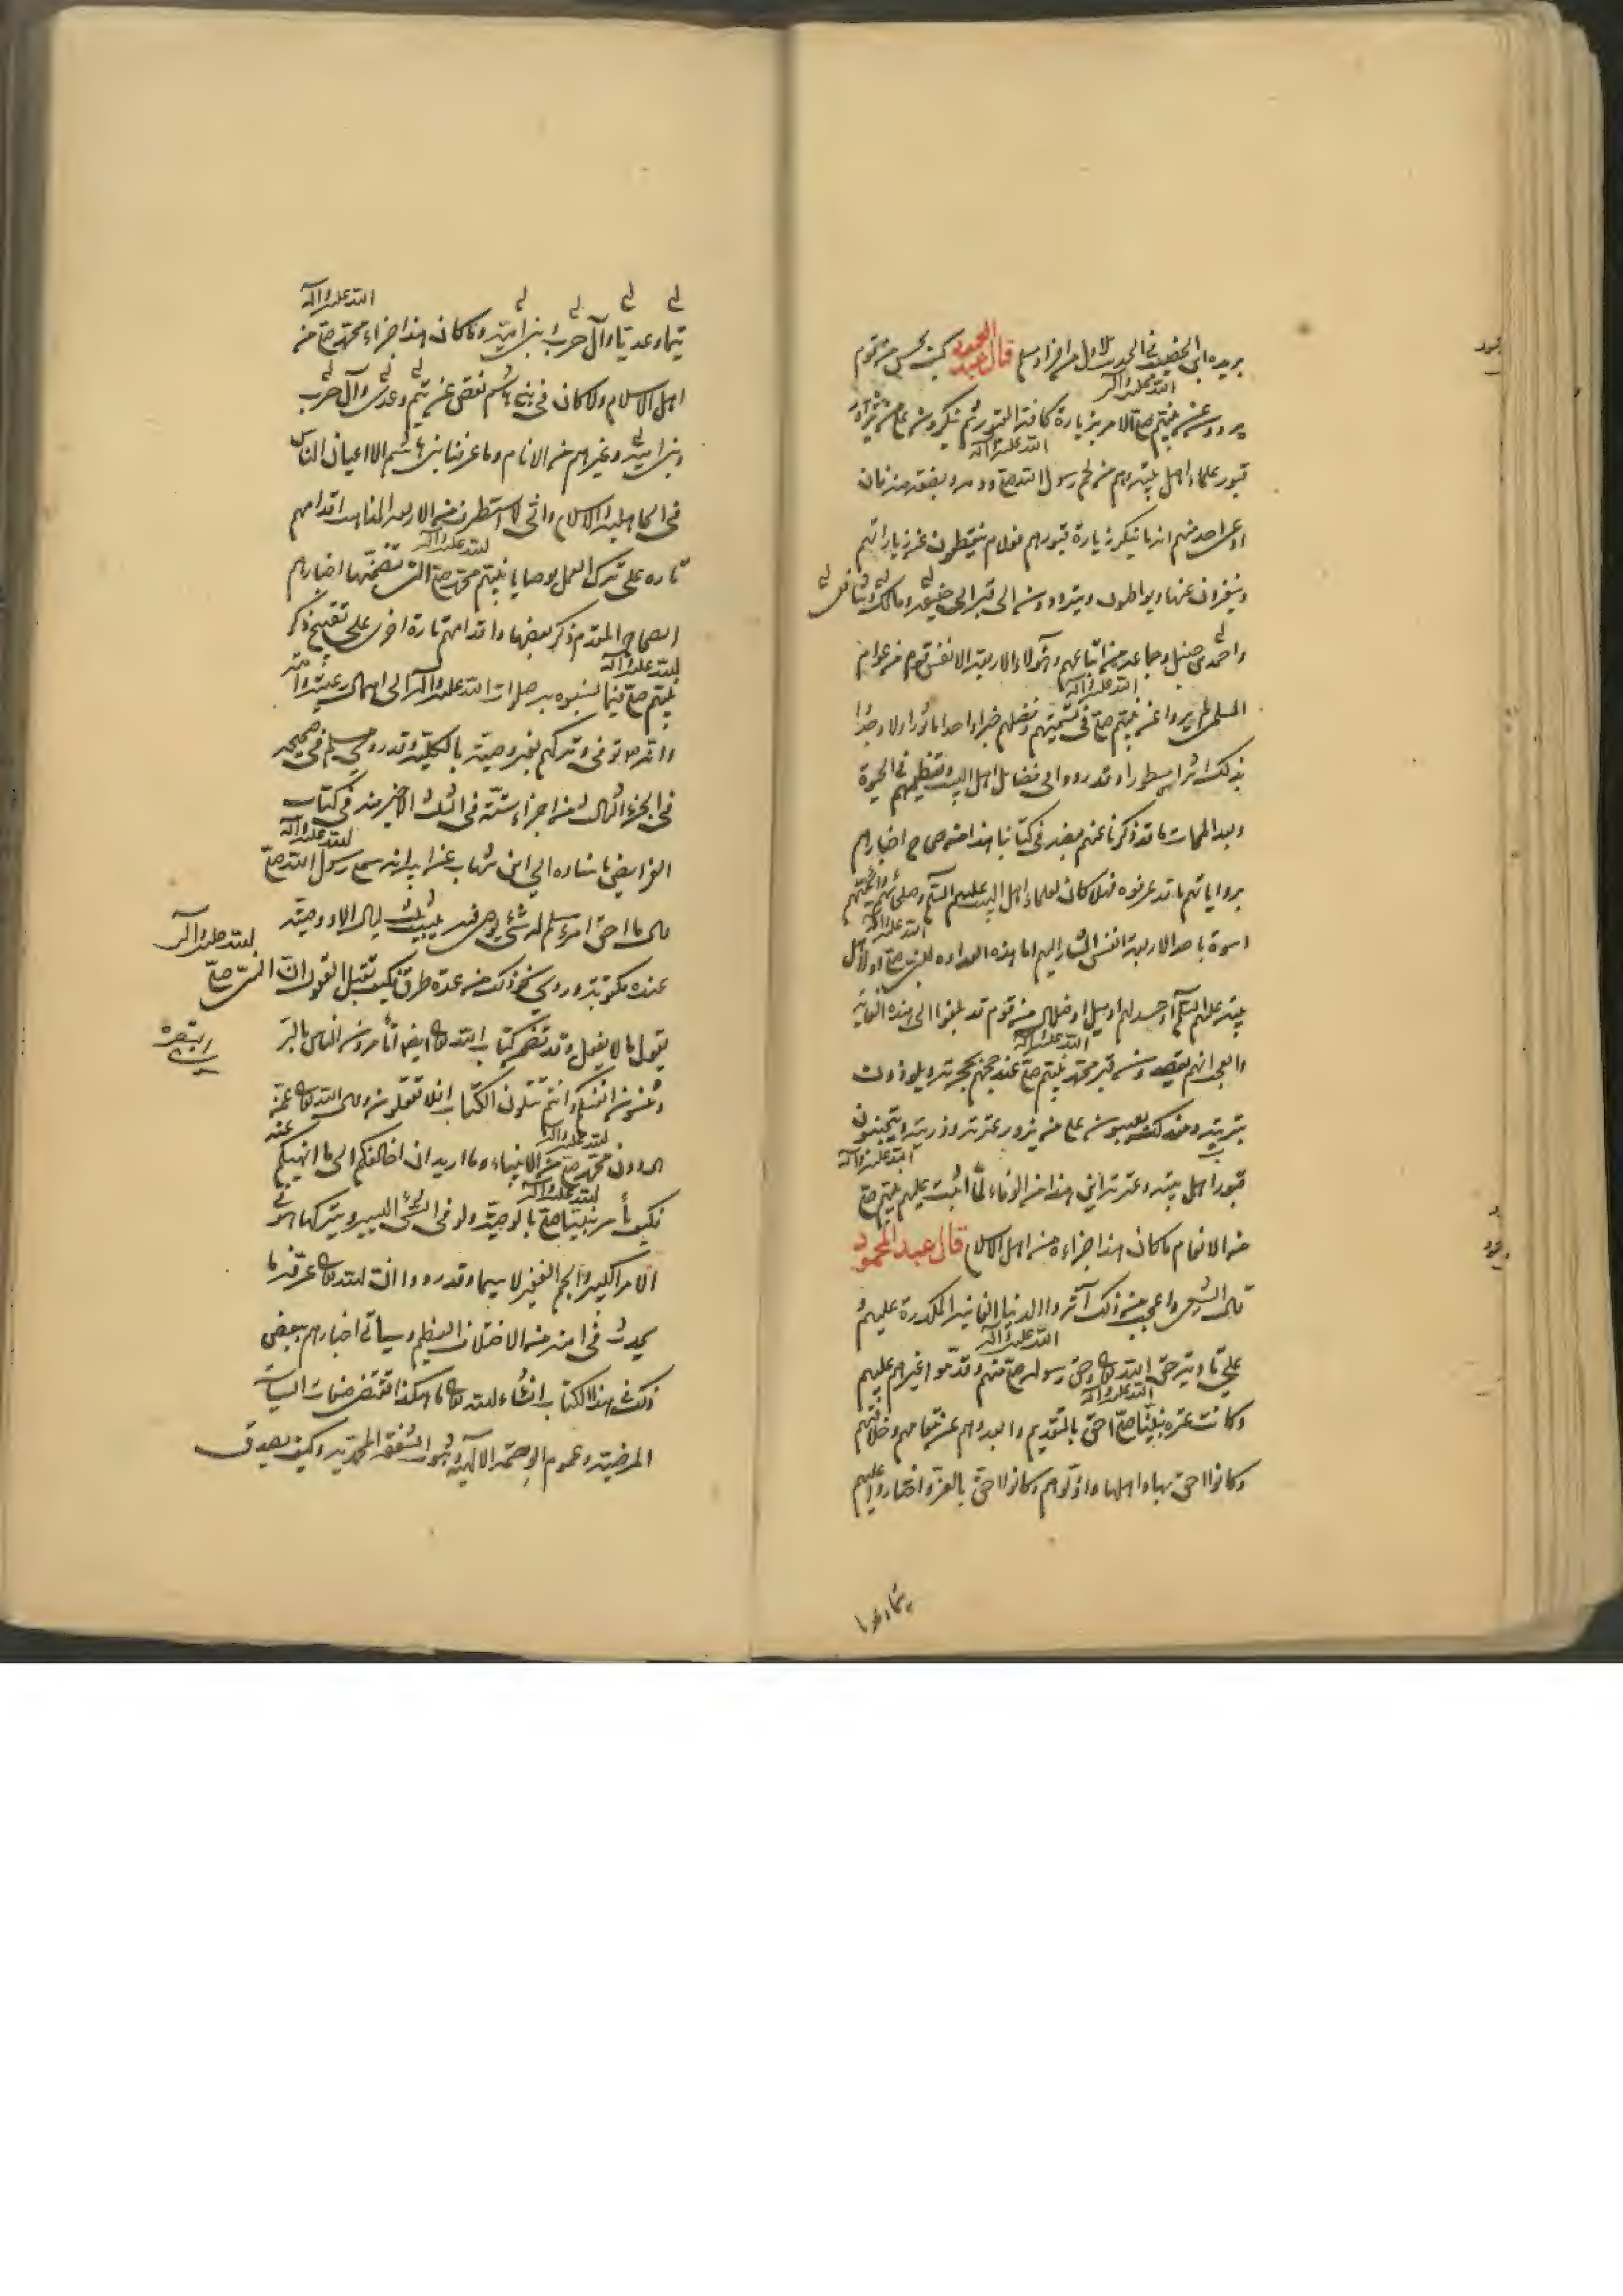 بريدة ابن الحصيب في الحديث الاول من افراد مسلم قال عبد المحمود كيف يحسن من قوم
يروون عن نبيهم صلى الله عليه وآله الامر بزيارة كافة القبور ثم ينكرون على من يزور
قبور علماء اهل بيته وهم من لحم رسول الله صلى الله عليه وآله ودمه وبضعة منه فان
ادعى احد منهم انه ما ينكر زيارة قبورهم فولام ينقطعون عن زياراتهم
وينفرون عنها ويواظبون ويترددون الى قبر ابي حنيفة ومالك وشافعي
واحمد بن حنبل وجماعة من اتباعهم وهؤلاء الاربعة الانفس قوم من عوام
المسلمين لم يرووا عن نبيهم صلى الله عليه وآله في تسميتهم وفضلهم خبرا واحدا ماثورا ولا وجدوا
بذلك اثرا مسطورا وقد رووا في فضايل اهل البيت وتعظيمهم في الحيوة
وبعد الممات ما قد ذكرنا عنهم بعضه في كتابنا هذا من صحاح اخبارهم
برواياتهم ما قد عرفوه فهلا كان لعلماء اهل البيت عليهم السلم وصلحائهم وائمتهم
اسوة باحد الاربعة انفس المشار اليهم اما هذه العداوة للنبي صلى الله عليه وآله او لاهل
بيته عليهم السلم او حسد لهم او ميل او ضلال من قوم قد بلغوا الى هذه الغاية
والعجب انهم يقصدون قبر محمد نبيهم صلى الله عليه وآله عند حجهم بحجرته ويلوذون
بتربته ومع ذلك يعيبون على من يزور عترته وذريته ويتجنبون
قبور اهل بيته وعترته اين هذا من الوفاء لما اثبت عليهم نبيهم صلى الله عليه وآله
من الانعام ما كان هذا جزاءه من اهل الاسلام قال عبد المحمود
واعجب من ذلك آثروا الدنيا الفانية المكدرة عليهم
على تادية حق الله تعالى وحق رسوله صلى الله عليه وآله منهم وقدموا غيرهم عليهم
وكانت عترة نبينا صلى الله عليه وآله احق بالتقديم وابعدوهم عن مقامهم وخلافتهم
وكانوا احق بها واهلها واذلوهم وكانوا احق بالعز واختاروا عليهم
تيما وعديا
تيما وعديا وآل حرب وبني امية وما كان هذا جزاء محمد صلى الله عليه وآله من
اهل الاسلام ولا كان في بني هاشم نقص عن تيم وعدي وآل حرب
وبني امية وغيرهم من الانام وما عرفنا بني هاشم الا اعيان الناس
في الجاهلية والاسلام واني لاستطرف من الاربعة المذاهب اقدامهم
تارة على ترك العمل بوصايا نبيهم محمد صلى الله عليه وآله التي تضمنها اخبارهم
الصحاح المقدم ذكر بعضها واقدامهم تارة اخرى على تقبيح ذكر
نبيهم صلى الله عليه وآله فيما نسبوه به صلوات الله عليه وآله الى اهمال رعيته وامته
وانه توفي وتركهم بغير وصية بالكلية وقد روى مسلم في صحيحه
في الجزء الثالث من اجزاء ستة في الثلث الاخير منه في كتاب
الفرايض باسناده الى ابن شهاب عن ابيه انه سمع رسول الله صلى الله عليه وآله
قال ما احق امرء مسلم له شيء يوصي فيه يبيت ثلث ليال الا ووصيته
عنده مكتوبة وروى نحو ذلك من عدة طرق فكيف تقبل العقول ان النبي صلى الله عليه وآله
يقول ما لا يفعل وقد تضمن كتاب الله تعالى ايضا اتأمرون الناس بالبر
وتنسون انفسكم وانتم تتلون الكتاب افلا تعقلون وقال الله تعالى عمن
هو دون محمد صلى الله عليه وآله من الانبياء وما اريد ان اخالفكم الى ما انهيكم عنه
فكيف يأمر نبينا صلى الله عليه وآله بالوصية ولو في الشيء اليسير ويتركها هو في
الامر الكبير والجم الغفير لا سيما وقد رووا ان الله تعالى عرفه ما
يحدث في امته من الاختلاف العظيم وسياتي اخبارهم ببعض
ذلك في هذا الكتاب انشاء الله تعالى ما هكذا تقتضي صفات السياسات
المرضية وعموم الرحمة الالهية وثبوت الشفقة المحمدية وكيف يصدق